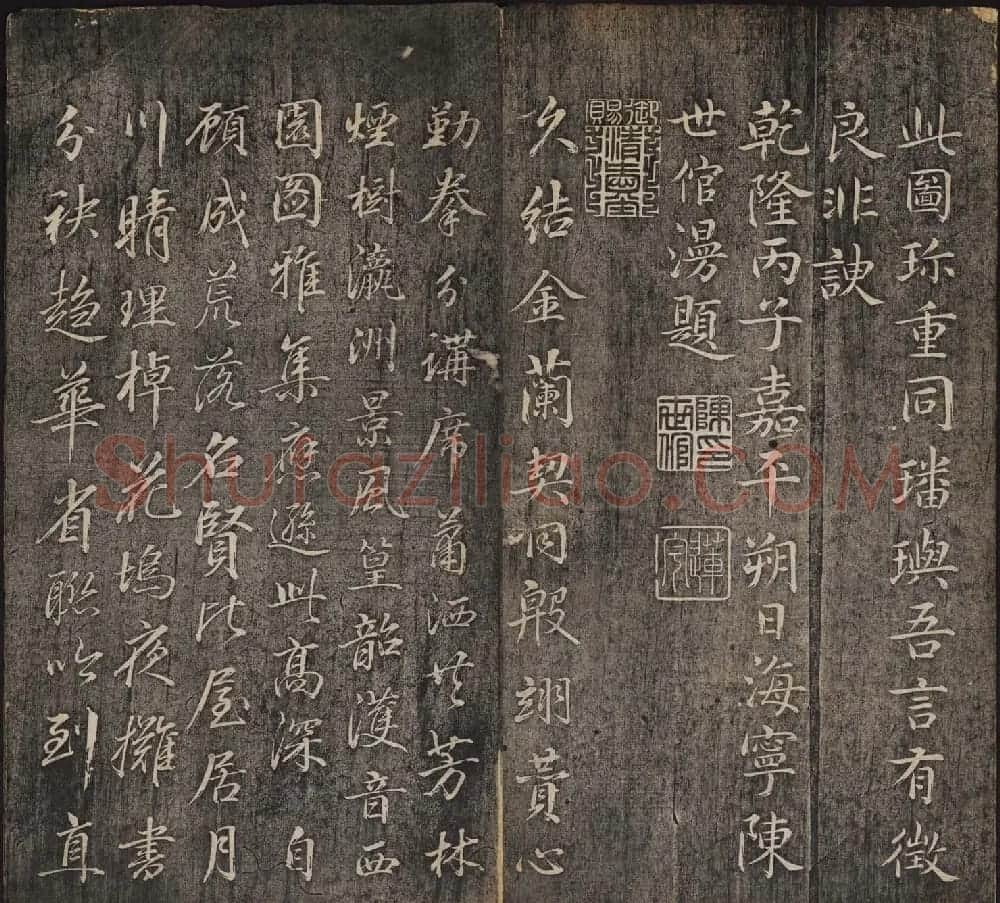 此圖珎重同璠璵吾言有徵
良非諛
乾隆丙子嘉平朔日海寧陳
世倌漫題
陳印世倌
蓮宇
久結金蘭契同殷翊贊心
勤拳分講席蕭洒共芳林
煙樹瀛洲景風篁韶濩音西
園图雅集應遜此高深自
顧成荒落名賢比屋居月
川晴理棹花塢夜攤書
分袂趍華省聯吟到直
Shufaziliao.com